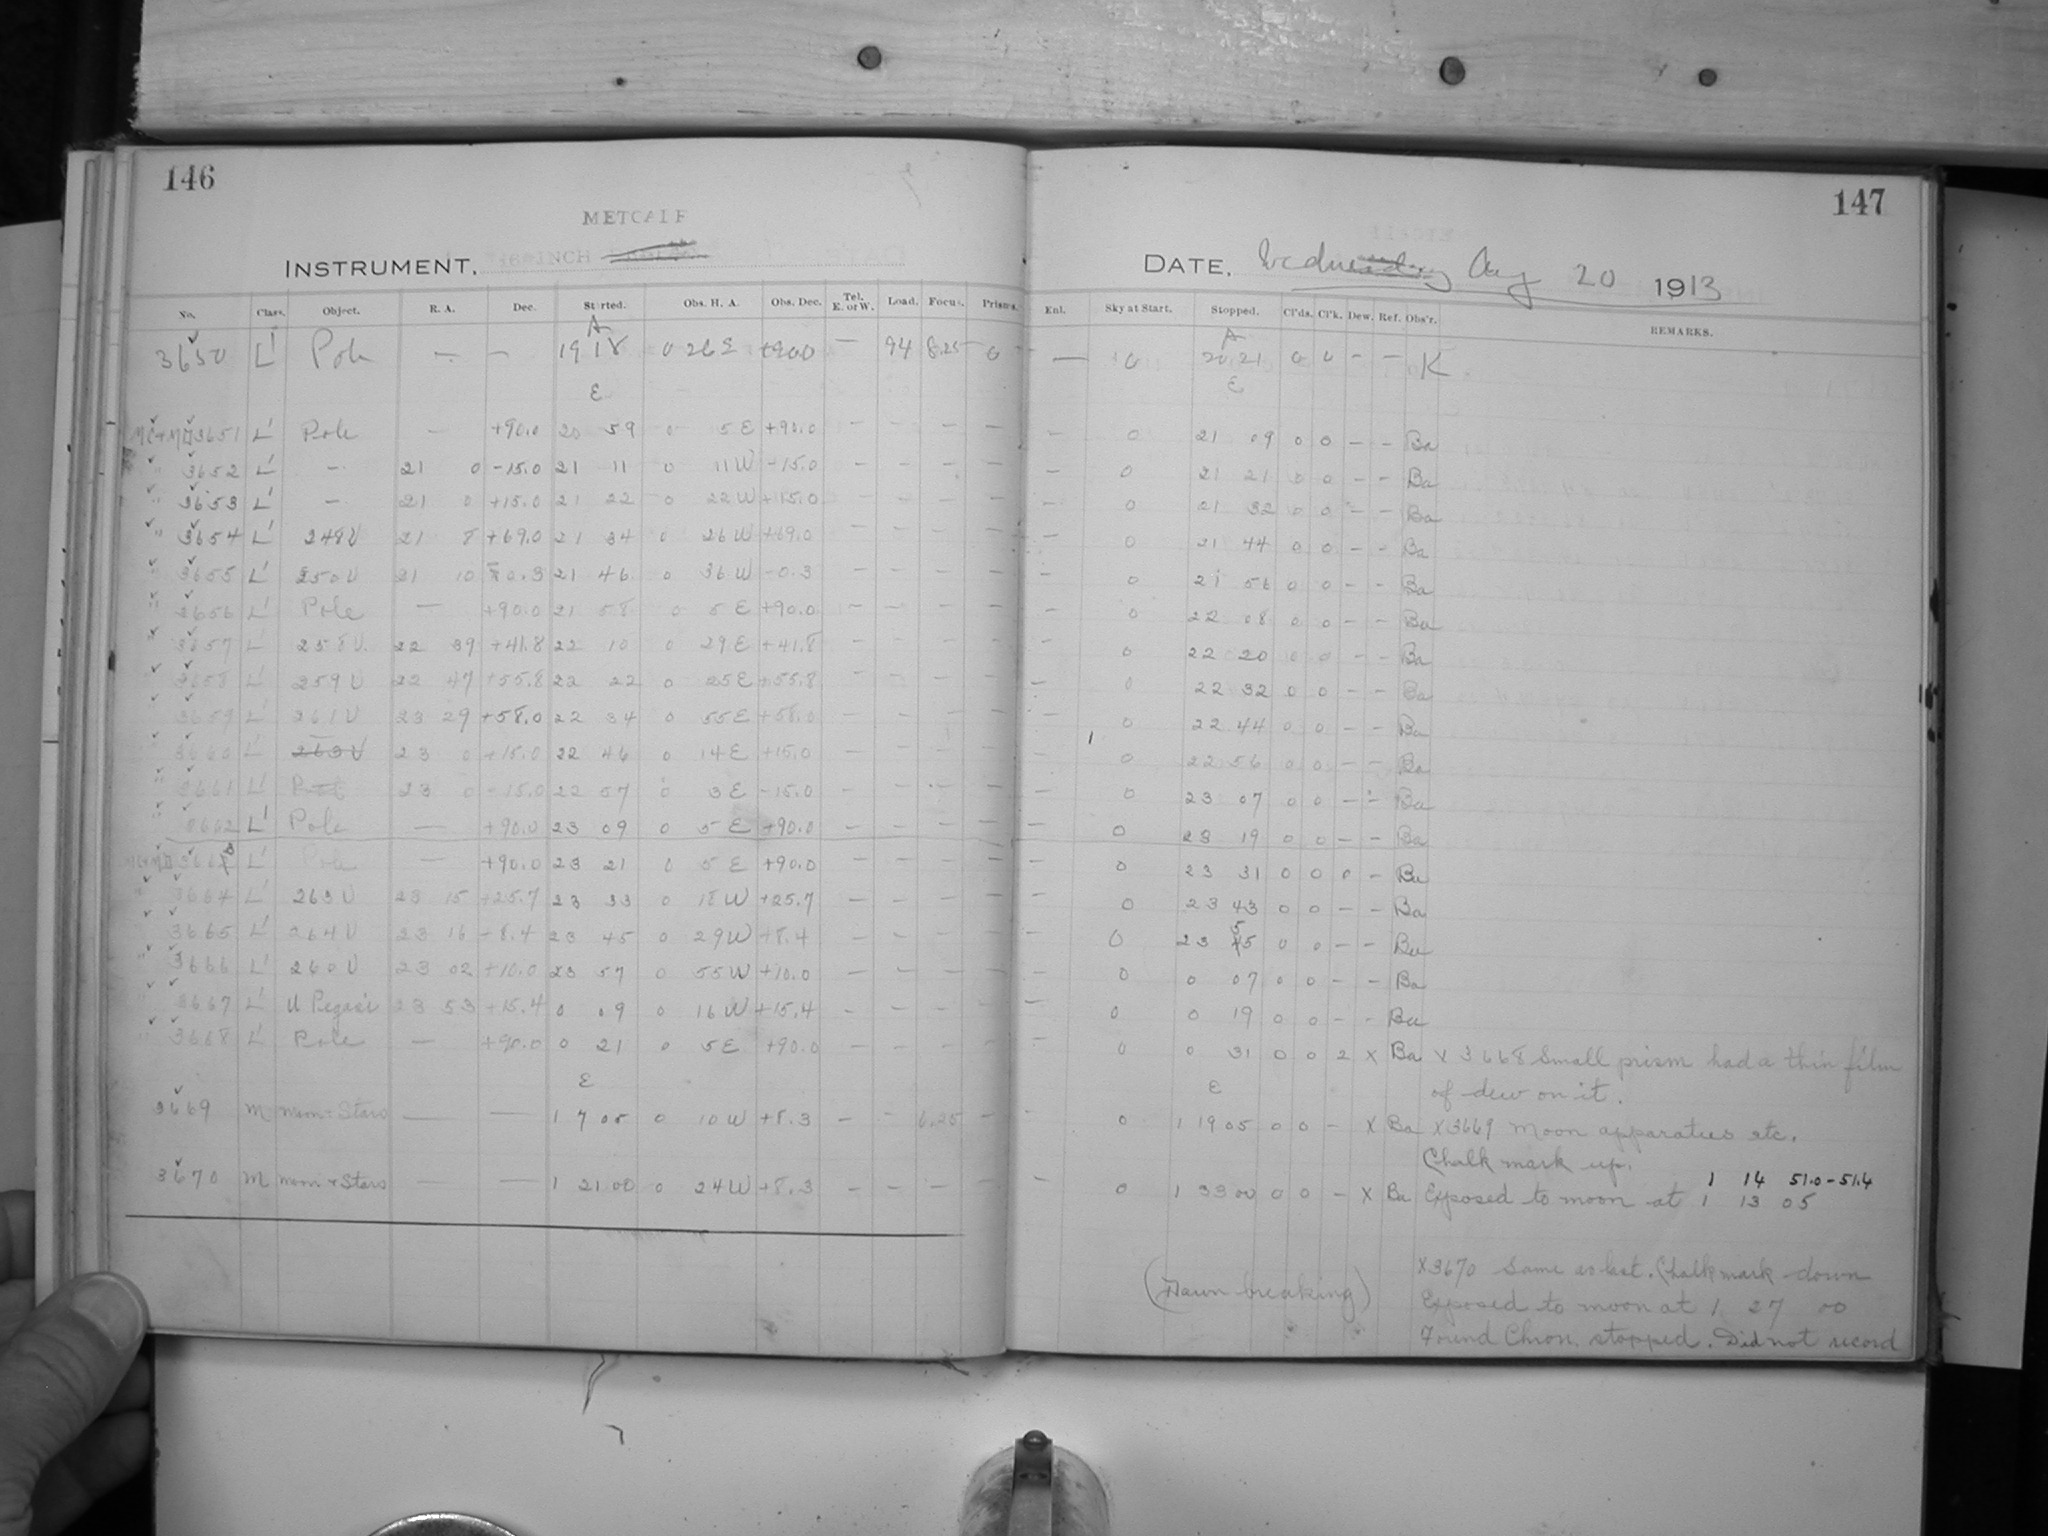 146
METCALF
INSTRUMENT, 16-INCH
No. Class. Object. R. A. Dec. Started. Obs. H. A. Obs. Dec. Tel. E. or W. Load. Focus. Prisms.
3650 L' Pole — — A 19 18 0 26 E +90.0 — 94 8.25 0
E
MC+MD 3651 L' Pole — +90.0 20 59 0 5 E +90.0 — — — —
" 3652 L' — 21 0 -15.0 21 11 0 11 W -15.0 — — — —
" 3653 L' — 21 0 +15.0 21 22 0 22 W +15.0 — — — —
" 3654 L' 248 U 21 8 +69.0 21 34 0 26 W +69.0 — — — —
" 3655 L' 250 U 21 10 -0.3 21 46 0 36 W -0.3 — — — —
" 3656 L' Pole — +90.0 21 58 0 5 E +90.0 — — — —
" 3657 L' 258 U. 22 39 +41.8 22 10 0 29 E +41.8 — — — —
" 3658 L' 259 U 22 47 +55.8 22 22 0 25 E +55.8 — — — —
" 3659 L' 261 U 23 29 +58.0 22 34 0 55 E +58.0 — — — —
" 3660 L' 263 U 23 0 +15.0 22 46 0 14 E +15.0 — — — —
" 3661 L' Pole 23 0 -15.0 22 57 0 3 E -15.0 — — — —
" 3662 L' Pole — +90.0 23 09 0 5 E +90.0 — — — —
MC+MD 3663 L' Pole — +90.0 23 21 0 5 E +90.0 — — — —
" 3664 L' 263 U 23 15 +25.7 23 33 0 18 W +25.7 — — — —
3665 L' 264 U 23 16 +8.4 23 45 0 29 W +8.4 — — — —
" 3666 L' 260 U 23 02 +10.0 23 57 0 55 W +10.0 — — — —
" 3667 L' U Pegasi 23 53 +15.4 0 09 0 16 W +15.4 — — — —
" 3668 L' Pole — +90.0 0 21 0 5 E +90.0 — — — —
E
3669 M Moon + Stars — — 1 7 05 0 10 W +8.3 — — 6.25 —
3670 M Moon + Stars — — 1 21 00 0 24 W +8.3 — — — —
147
DATE, Wednesday Aug 20 1913
Enl. Sky at Start. Stopped. Cl'ds. Cl'k. Dew. Ref. Obs'r. REMARKS.
— 0 A 20 21 0 0 — — K
E
— 0 21 09 0 0 — — Ba
— 0 21 21 0 0 — — Ba
— 0 21 32 0 0 — — Ba
— 0 21 44 0 0 — — Ba
— 0 21 56 0 0 — — Ba
— 0 22 08 0 0 — — Ba
— 0 22 20 0 0 — — Ba
— 0 22 32 0 0 — — Ba
— 0 22 44 0 0 — — Ba
— 0 22 56 0 0 — — Ba
— 0 23 07 0 0 — — Ba
— 0 23 19 0 0 — — Ba
— 0 23 31 0 0 0 — Ba
— 0 23 43 0 0 — — Ba
— 0 23 55 0 0 — — Ba
— 0 0 07 0 0 — — Ba
— 0 0 19 0 0 — — Ba
0 0 31 0 0 2 X Ba X 3668 Small prism had a thin film
E of dew on it.
0 1 19 05 0 0 — X Ba X3669 Moon apparatus etc.
Chalk mark up. 1 14 51.0-51.4
0 1 33 00 0 0 — X Ba Exposed to moon at 1 13 05
X3670 Same as last. Chalk mark down
(Dawn breaking) Exposed to moon at 1 27 00
Found Chron. stopped. Did not record